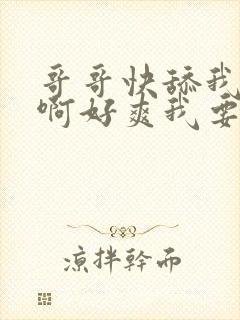 哥哥快舔我
啊好爽我要
凉拌幹而